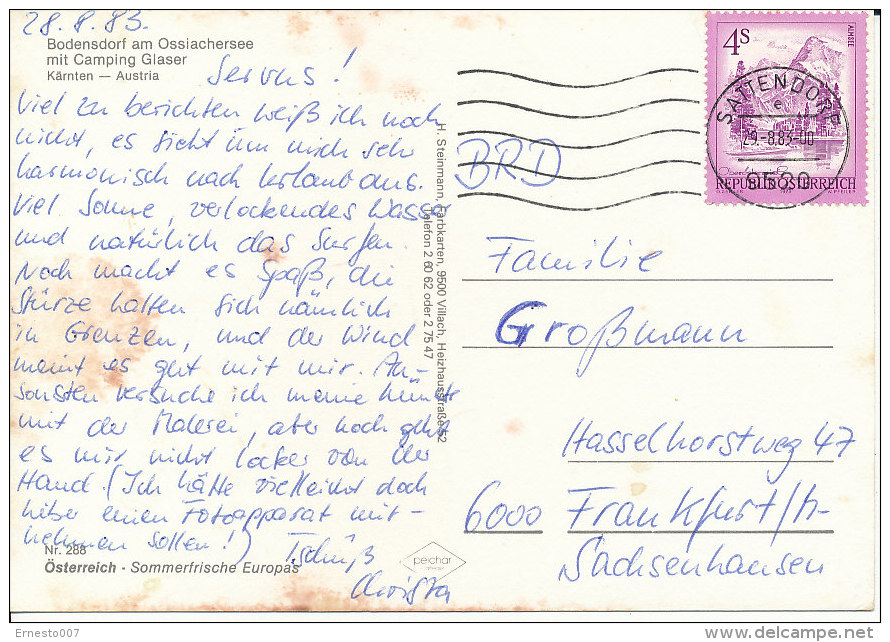 28.8.83.
Bodensdorf am Ossiachersee
mit Camping Glaser
Kärnten — Austria
Servus!
Viel zu berichten weiß ich noch
nicht, es sieht um mich sehr
harmonisch nach Urlaub aus.
Viel Sonne, verlockendes Wasser
und natürlich das Surfen.
Noch macht es Spaß, die
Stürze halten sich nämlich
in Grenzen, und der Wind
meint es gut mit mir. An-
sonsten versuche ich meine Künste
mit der Malerei, aber noch geht
es mir nicht locker von der
Hand. (Ich hätte vielleicht doch
lieber einen Fotoapparat mit-
nehmen sollen!) Tschüß
Christa
Nr. 288
Österreich - Sommerfrische Europas
peichar
H. Steinmann, Farbkarten, 9500 Villach, Heizhausstraße 52
Telefon 2 60 62 oder 2 75 47
4S
ALMSEE
REPUBLIK ÖSTERREICH
SATTENDORF
29.-8.83-00
9520
BRD
Familie
Großmann
Hasselhorstweg 47
6000 Frankfurt/M-
Sachsenhausen
Ernesto007
delcampe.net